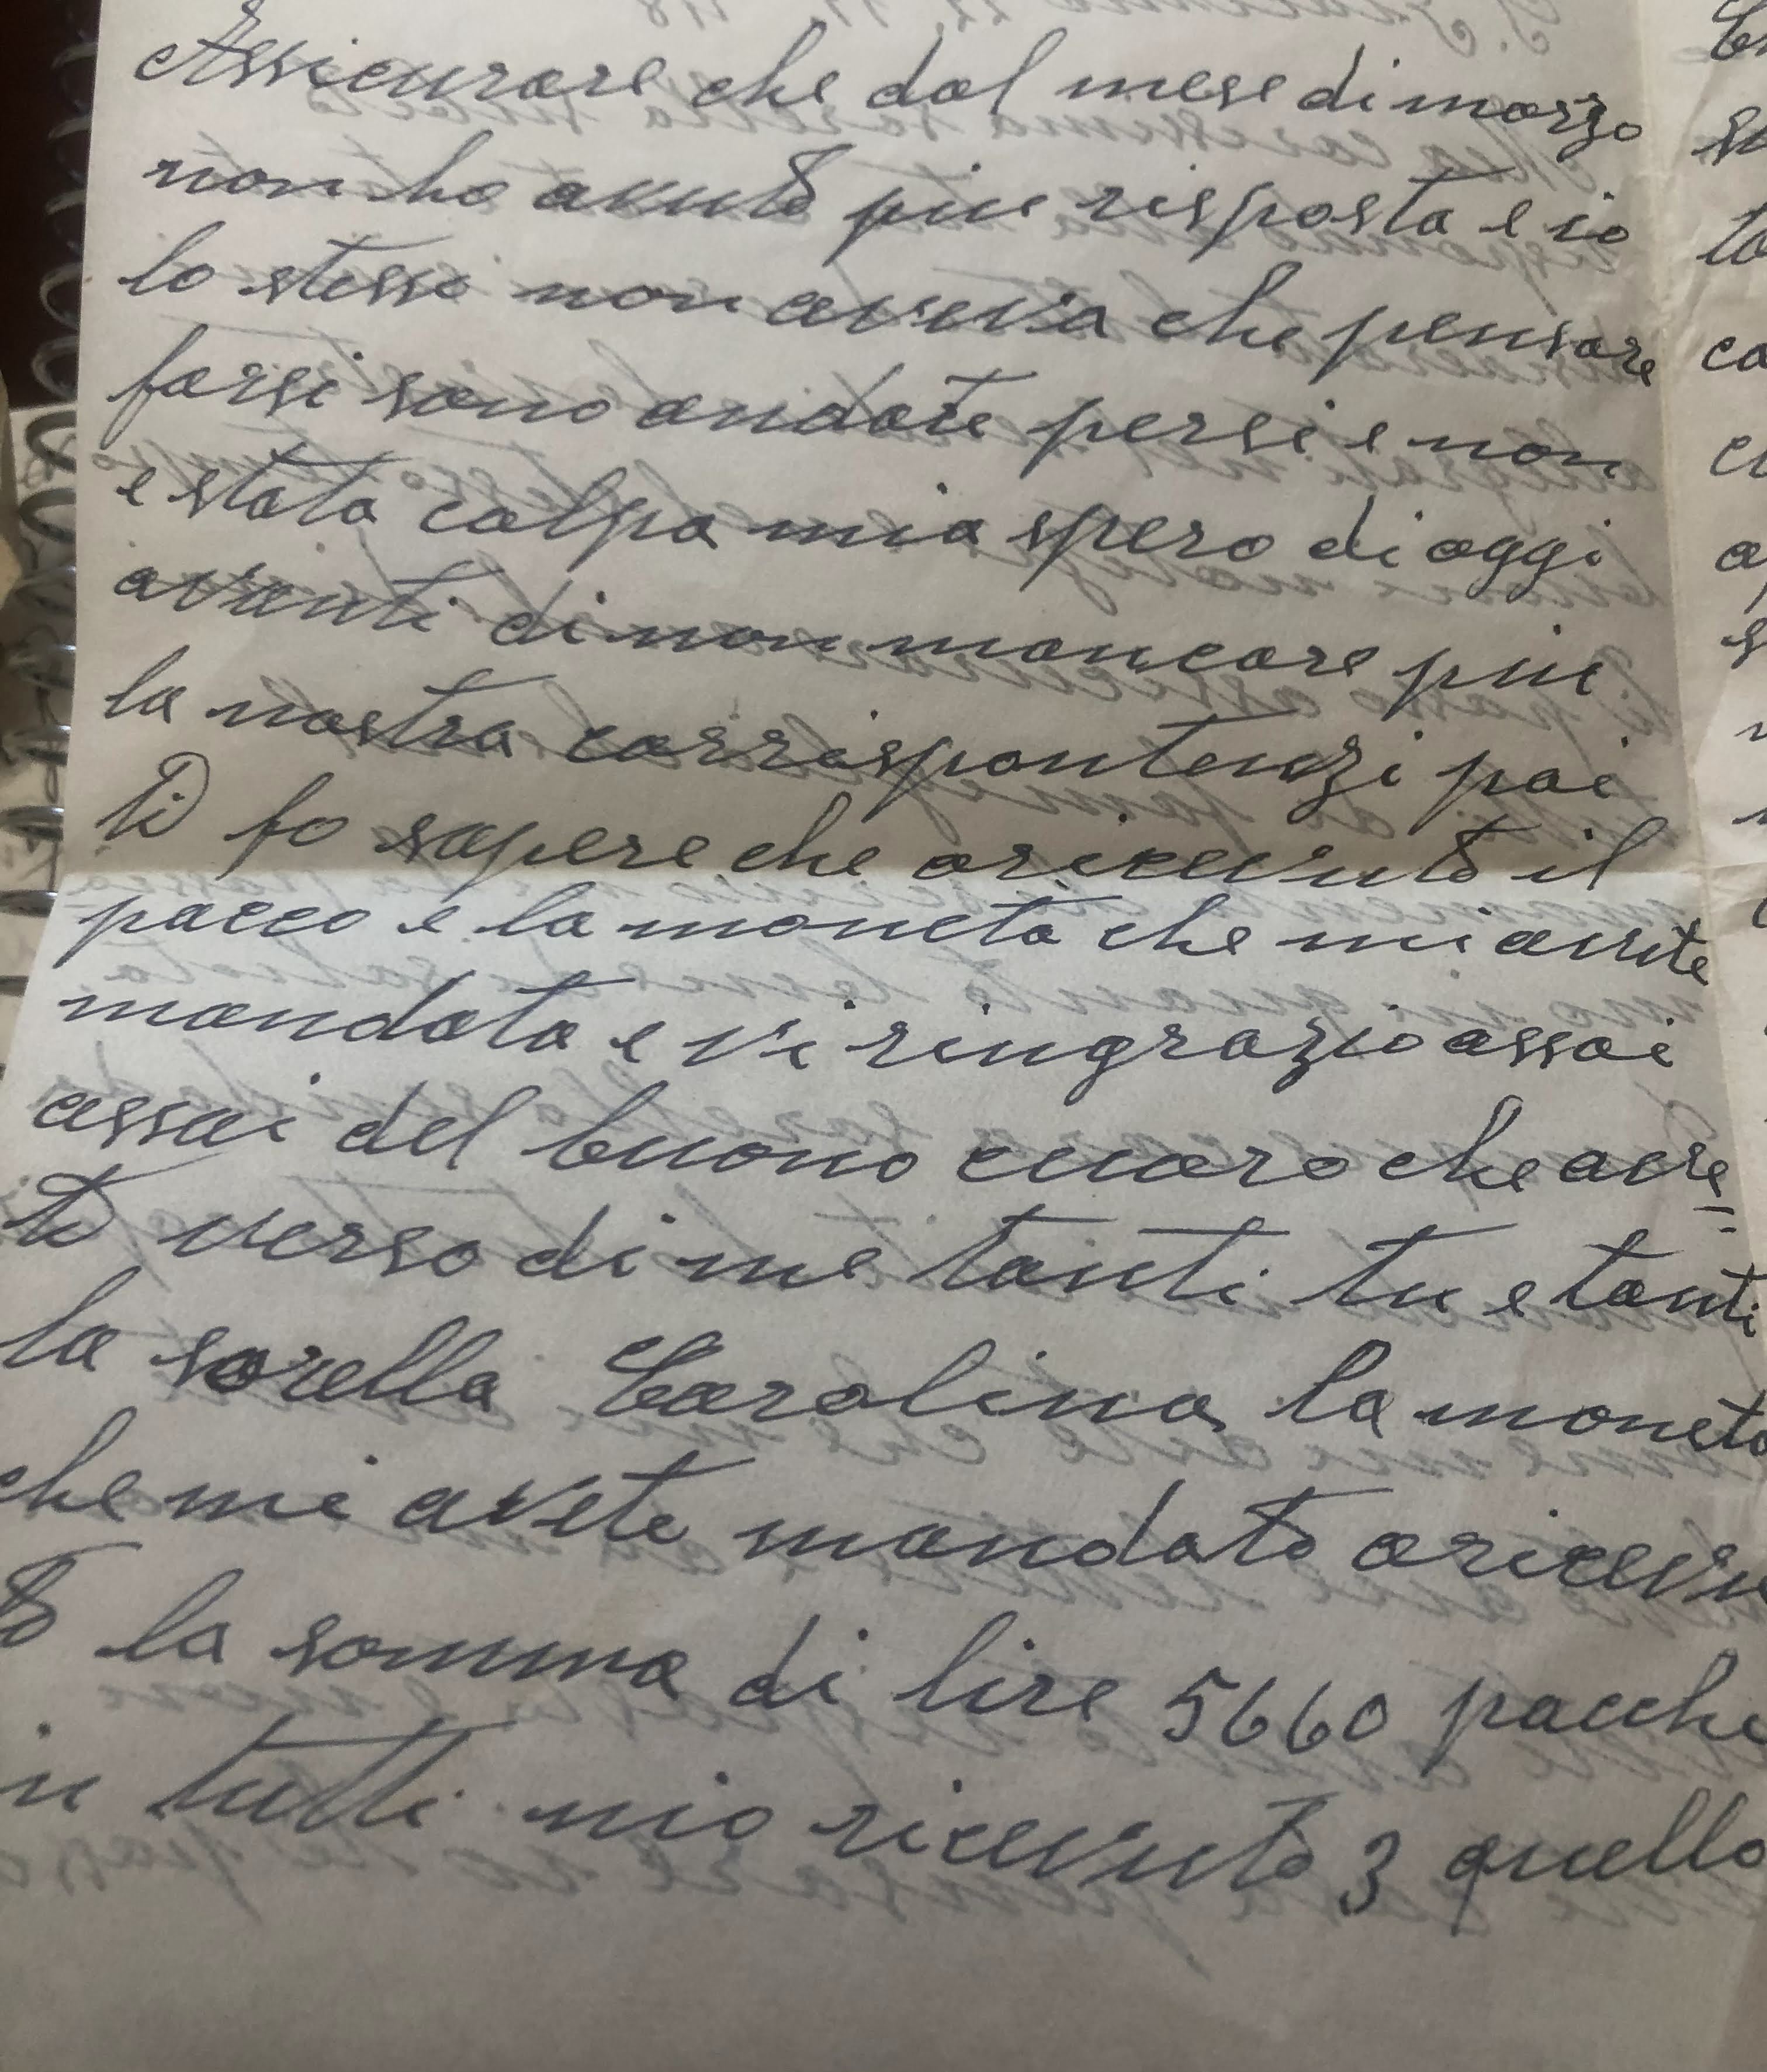 Assicurare che dal mese di marzo
non ho avuto piu risposta e io
lo stesso non aveva che pensare
forsi sono andate persi e non
e stata colpa mia spero di oggi
avanti di non mancare piu
la nostra corrispontenzi poi
ti fo sapere che o ricevuto il
pacco e la moneta che mi avete
mandata e vi ringrazio assai
assai del buono cuoro che ave=
ti verso di me tanti tu e tanti
la sorella Carolina la moneta
che mi avete mandato o ricevu
to la somma di lire 5660 pacche
in tutti nio ricevuto 3 quello